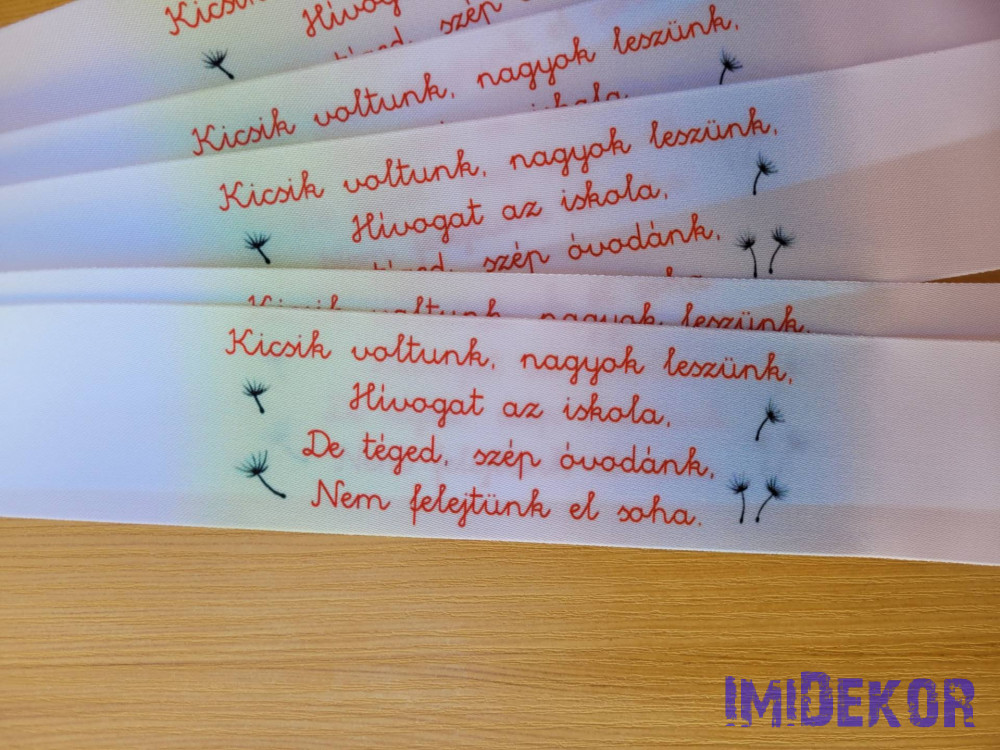 Kicsik
Hívogat
téged, szép
Kicsik voltunk, nagyok leszünk,
iskola,
Kicsik voltunk, nagyok leszünk,
Hívogat az iskola,
téged, szép óvodánk,
Kicsik voltunk, nagyok leszünk,
Kicsik voltunk, nagyok leszünk,
Hívogat az iskola,
De téged, szép óvodánk,
Nem felejtünk el soha.
IMIDEKOR